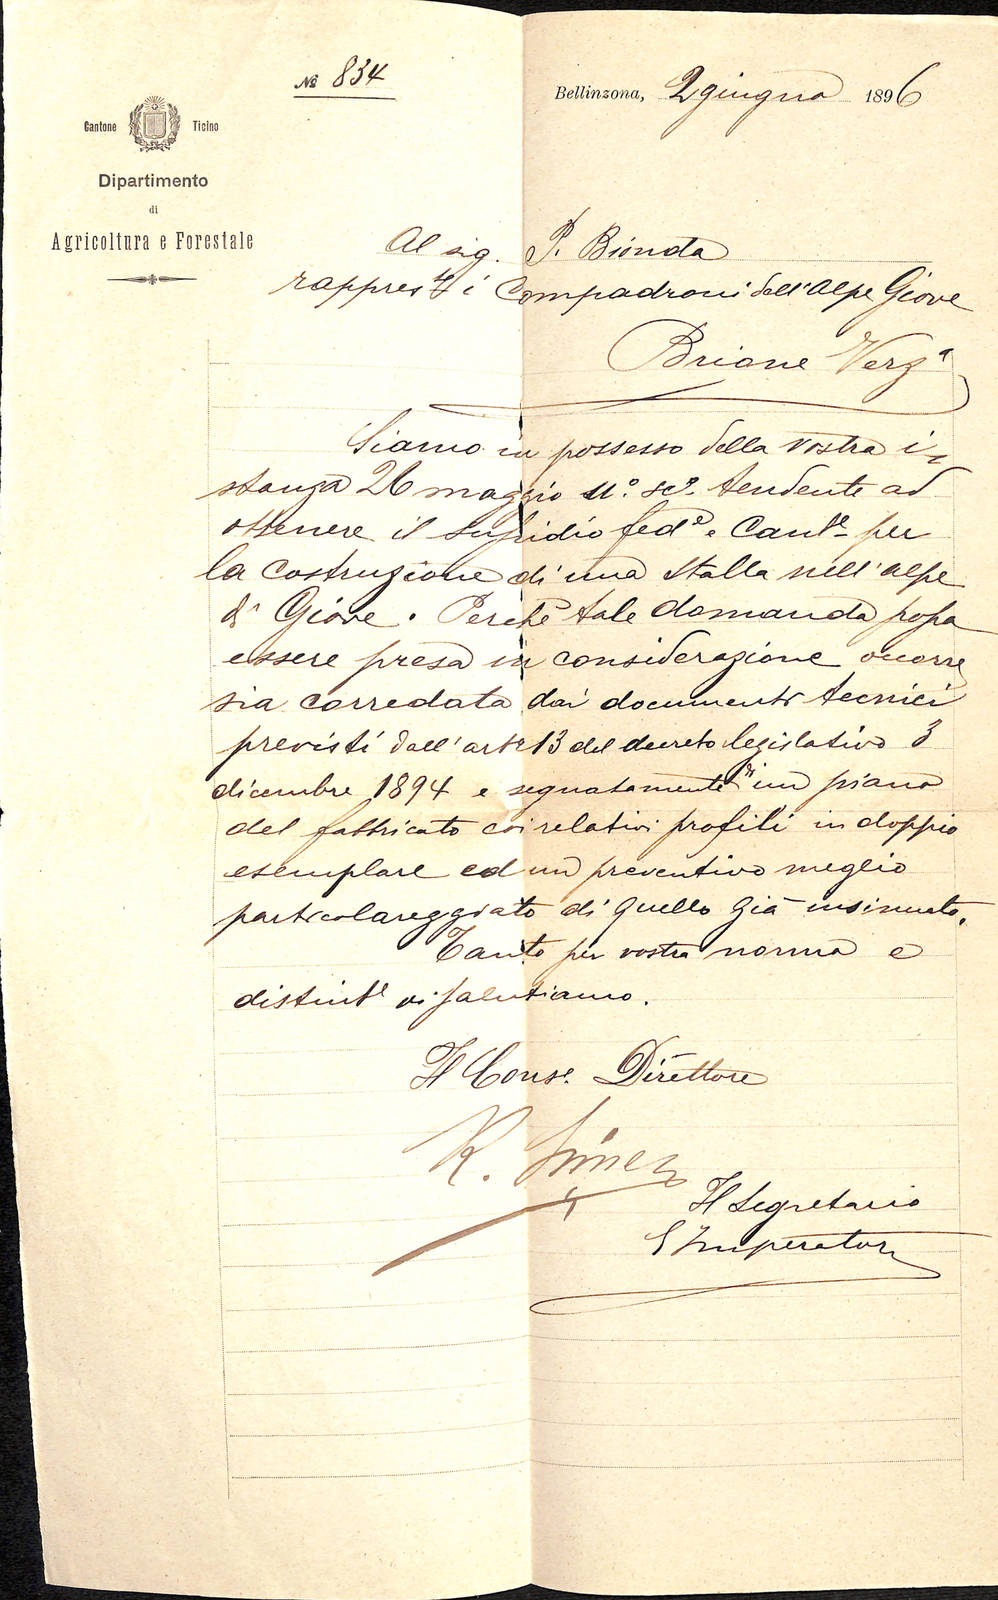 № 834
Bellinzona, 2 giugno 1896
Cantone Ticino
Dipartimento
di
Agricoltura e Forestale
Al sig. P. Bionda
rappres.te i Compadroni dell'alpe Giove
Brione Verz.a
Siamo in possesso della vostra i=
stanza 26 maggio u.o sc.o tendente ad
ottenere il sussidio fed.e e Cant.e per
la costruzione di una stalla nell'alpe
di Giove. Perchè tale domanda possa
essere presa in considerazione occorre
sia corredata dai documenti tecnici
previsti dall'arte 13 del decreto legislativo 3
dicembre 1894 e segnatamente di un piano
del fabbricato coi relativi profili in doppio
esemplare ed un preventivo meglio
particolareggiato di quello già insinuato.
Tanto per vostra norma e
distint.e vi salutiamo.
Il Cons.e Direttore
R. Simen
Il Segretario
Imperatori